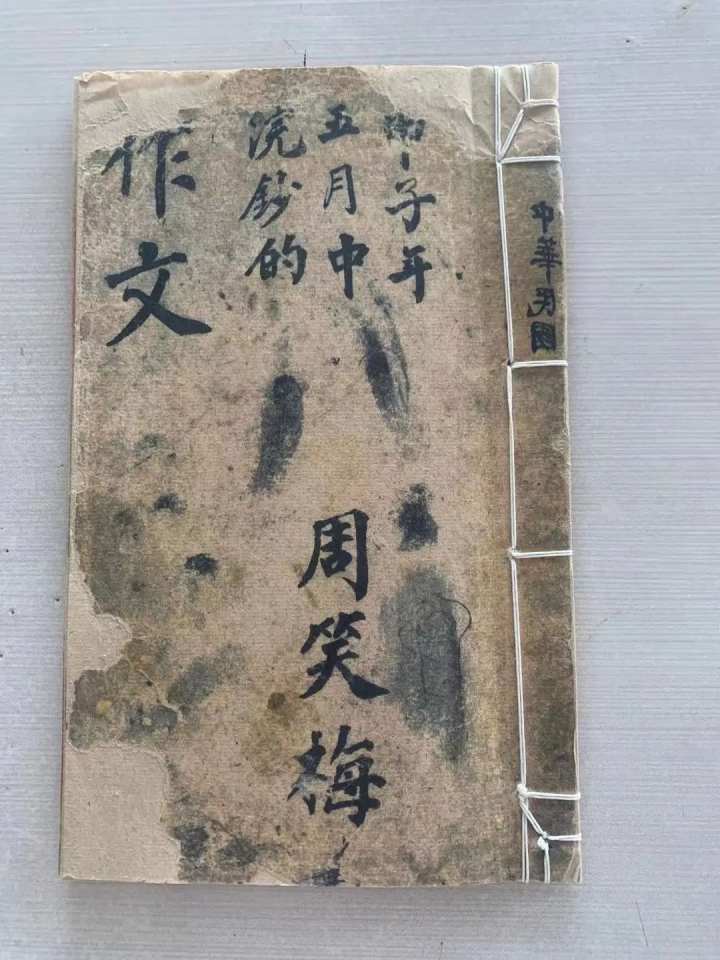 中華民國
子年
五月中
浣鈔的
周笑梅
作文